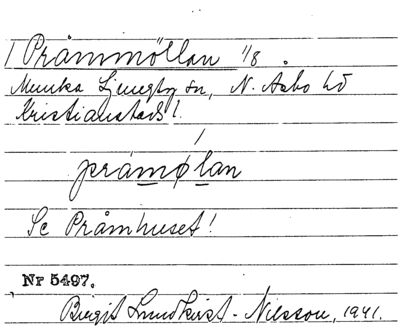 1 Pråmmöllan 1/8
Munka Ljungby sn, N. Åsbo hd
Kristianstads l.
pråmølan
Se Pråmhuset!
Nr 5497.
Birgit Lundkvist-Nilsson, 1941.